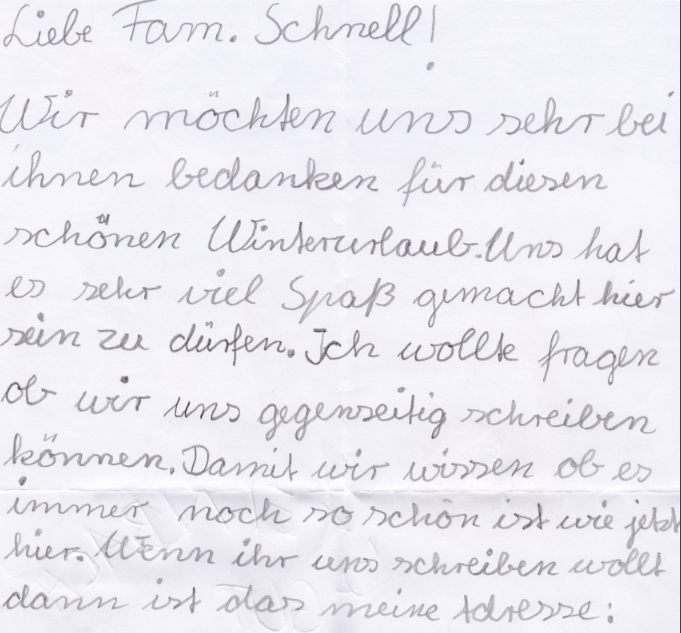 Liebe Fam. Schnell!
Wir möchten uns sehr bei
ihnen bedanken für diesen
schönen Winterurlaub. Uns hat
es sehr viel Spaß gemacht hier
sein zu dürfen. Ich wollte fragen
ob wir uns gegenseitig schreiben
können. Damit wir wissen ob es
immer noch so schön ist wie jetzt
hier. Wenn ihr uns schreiben wollt
dann ist das meine Adresse: